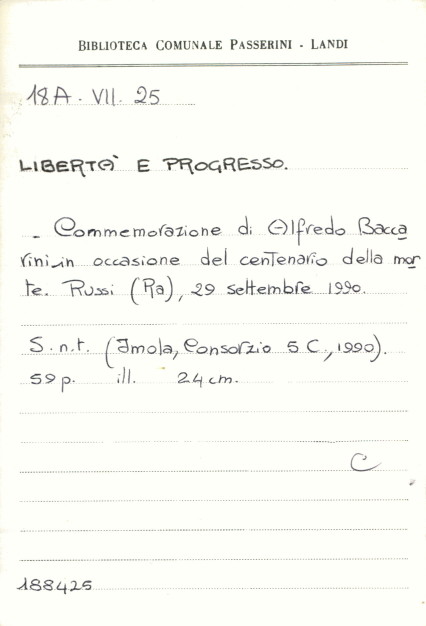 BIBLIOTECA COMUNALE PASSERINI - LANDI
18A. VII. 25
LIBERTA' E PROGRESSO.
- Commemorazione di Alfredo Bacca
rini in occasione del centenario della mor
te. Russi (Ra), 29 settembre 1990.
S.n.t. (Imola, Consorzio 5 C., 1990).
59 p. ill. 24 cm.
C
188425